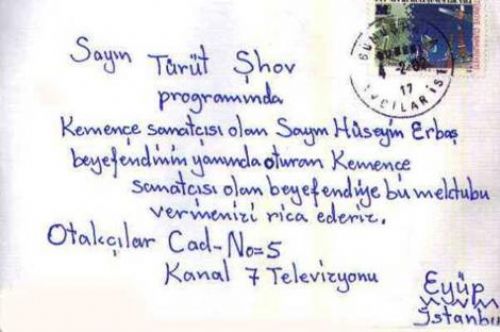 Sayın Türüt Şhov
programında
Kemençe sanatcısı olan Sayın Hüseyin Erbaş
beyefendinin yanında oturan Kemençe
sanatcısı olan beyefendiye bu mektubu
vermenizi rica ederiz.
Otakçılar Cad-No=5
Kanal 7 Televizyonu
Eyüp
İstanbul
17